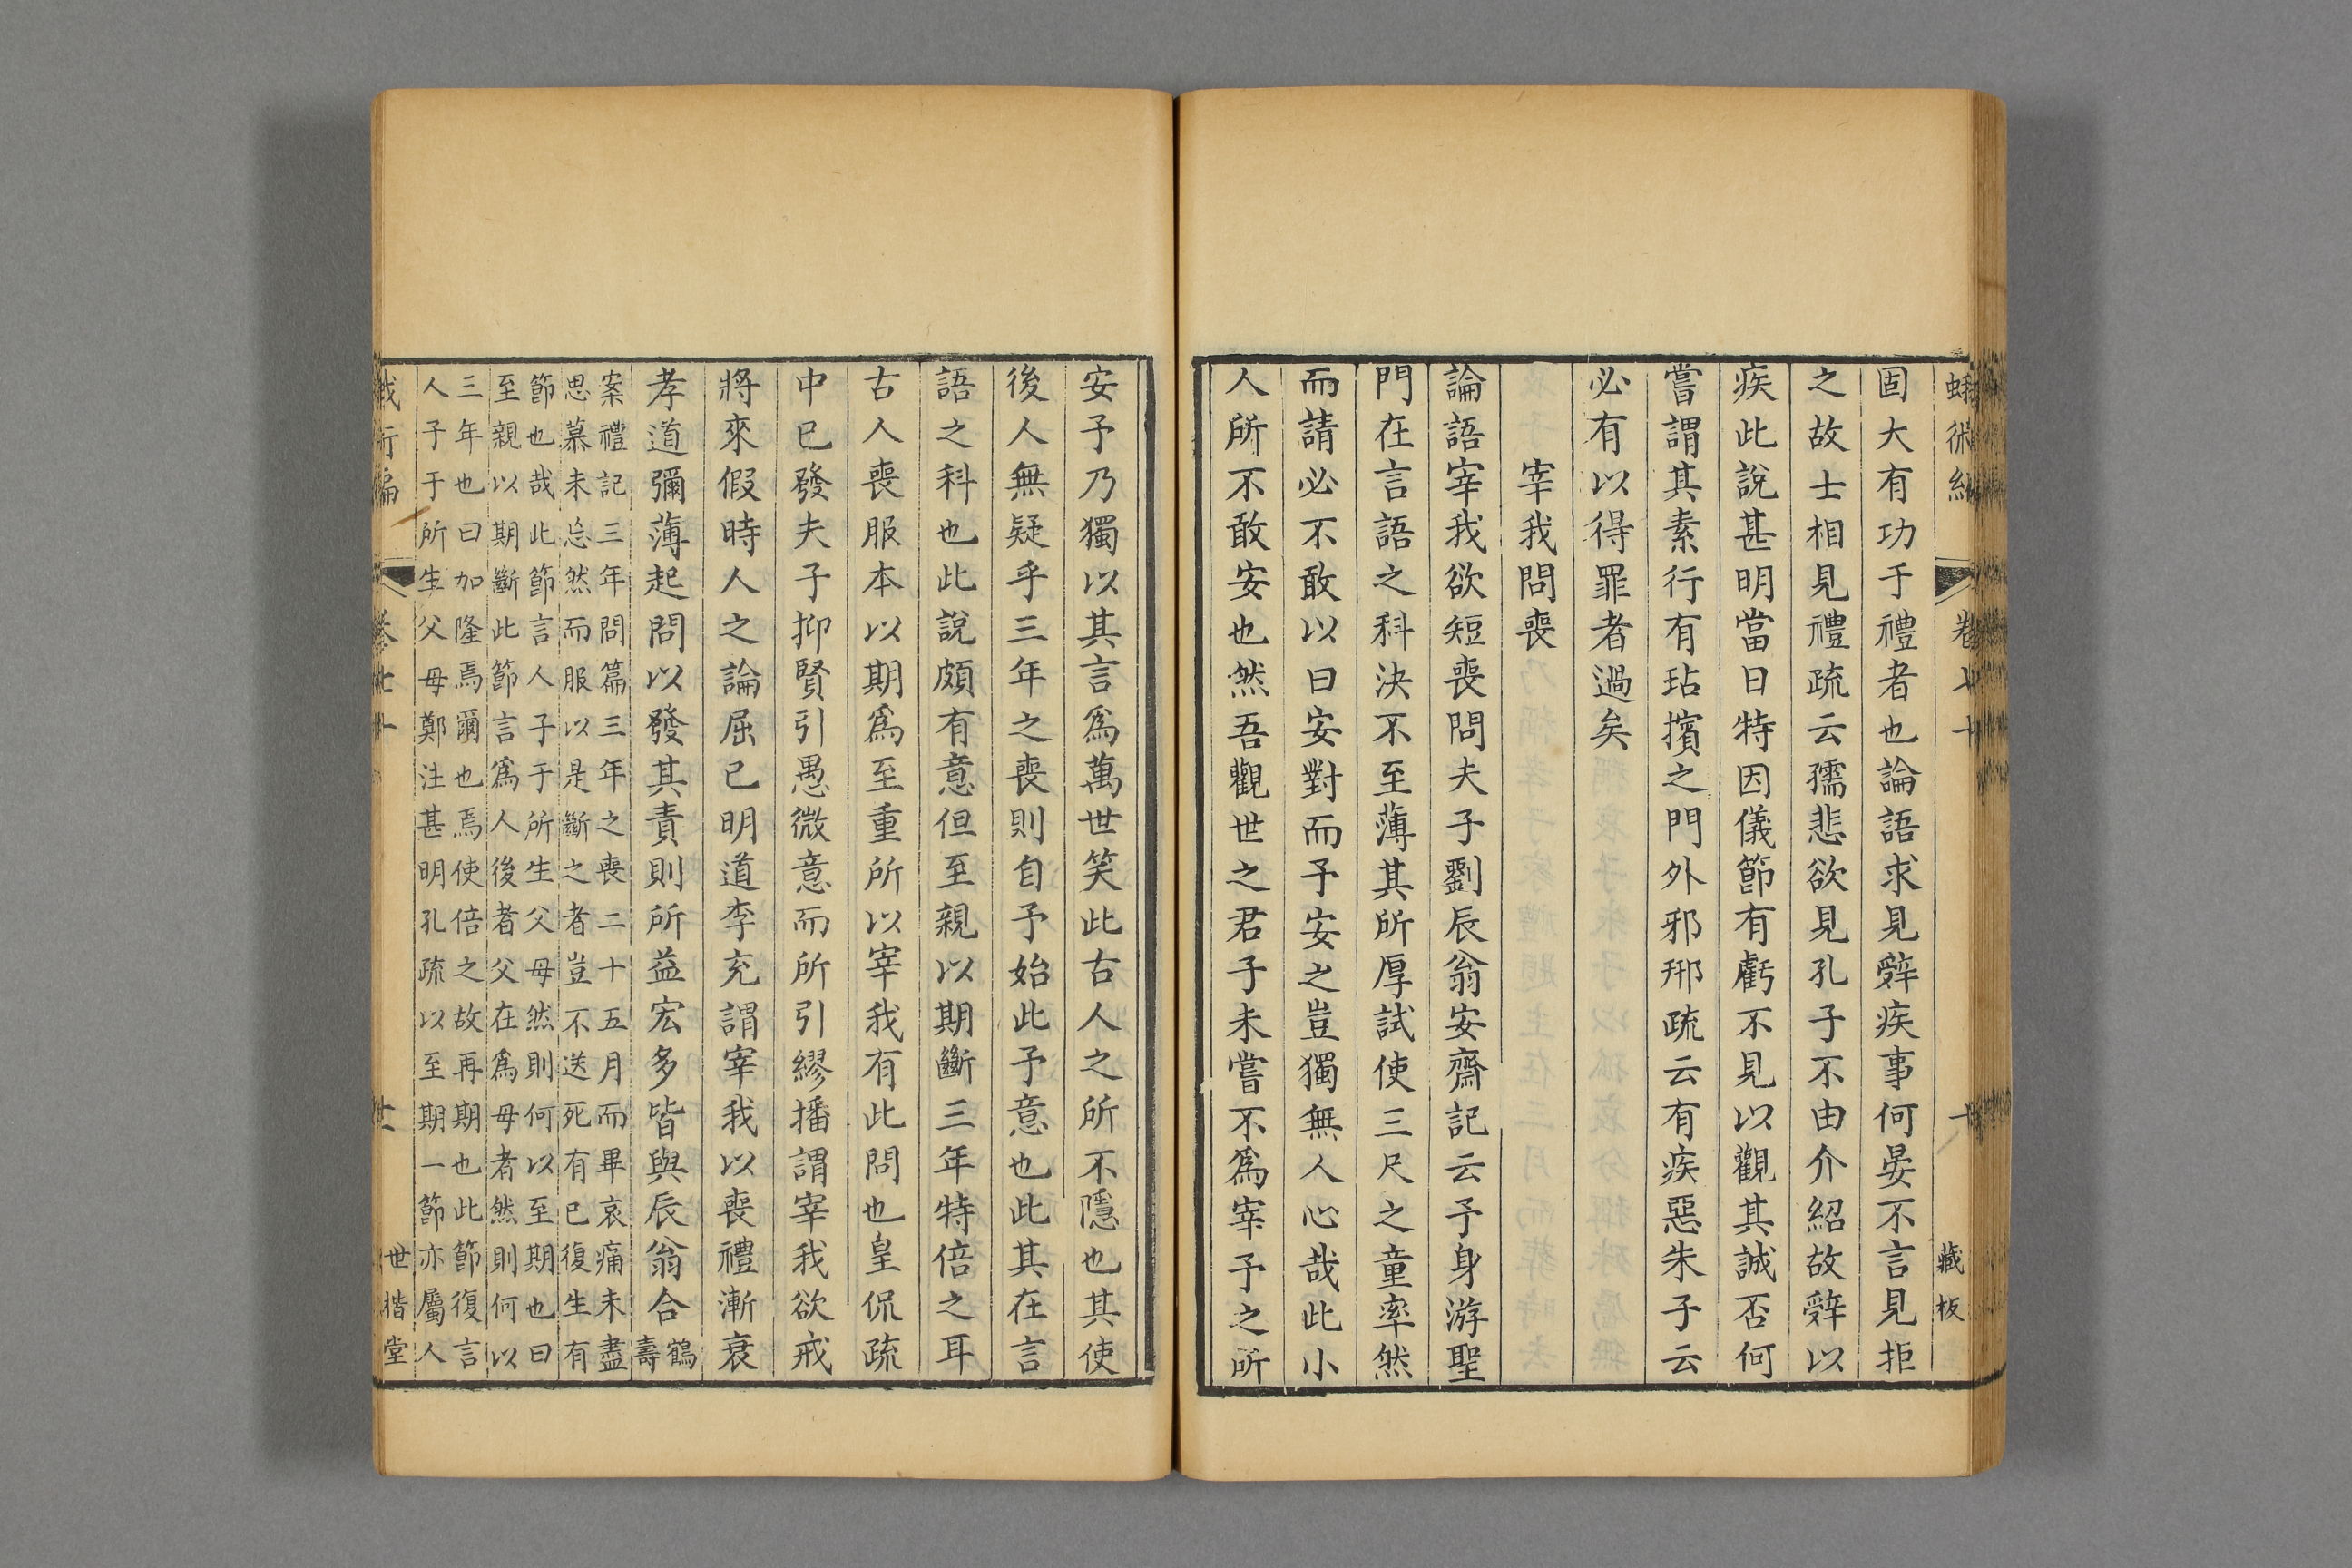 卷七十
十
藏板
固大有功于禮者也論語求見辤疾事何晏不言見拒
之故士相見禮疏云孺悲欲見孔子不由介紹故辤以
疾此說甚明當日特因儀節有虧不見以觀其誠否何
嘗謂其素行有玷擯之門外邪邢疏云有疾惡朱子云
必有以得罪者過矣
宰我問喪
論語宰我欲短喪問夫子劉辰翁安齋記云予身游聖
門在言語之科決不至薄其所厚試使三尺之童率然
而請必不敢以曰安對而予安之豈獨無人心哉此小
人所不敢安也然吾觀世之君子未嘗不爲宰予之所
安予乃獨以其言爲萬世笑此古人之所不隱也其使
後人無疑乎三年之喪則自予始此予意也此其在言
語之科也此說頗有意但至親以期斷三年特倍之耳
古人喪服本以期爲至重所以宰我有此問也皇侃疏
中已發夫子抑賢引愚微意而所引繆播謂宰我欲戒
將來假時人之論屈已明道李充謂宰我以喪禮漸衰
孝道彌薄起問以發其責則所益宏多皆與辰翁合鶴壽
案禮記三年問篇三年之喪二十五月而畢哀痛未盡
思慕未忘然而服以是斷之者豈不送死有已復生有
節也哉此節言人子于所生父母然則何以至期也曰
至親以期斷此節言爲人後者父在爲母者然則何以
三年也曰加隆焉爾也焉使倍之故再期也此節復言
人子于所生父母鄭注甚明孔疏以至期一節亦屬人
世楷堂